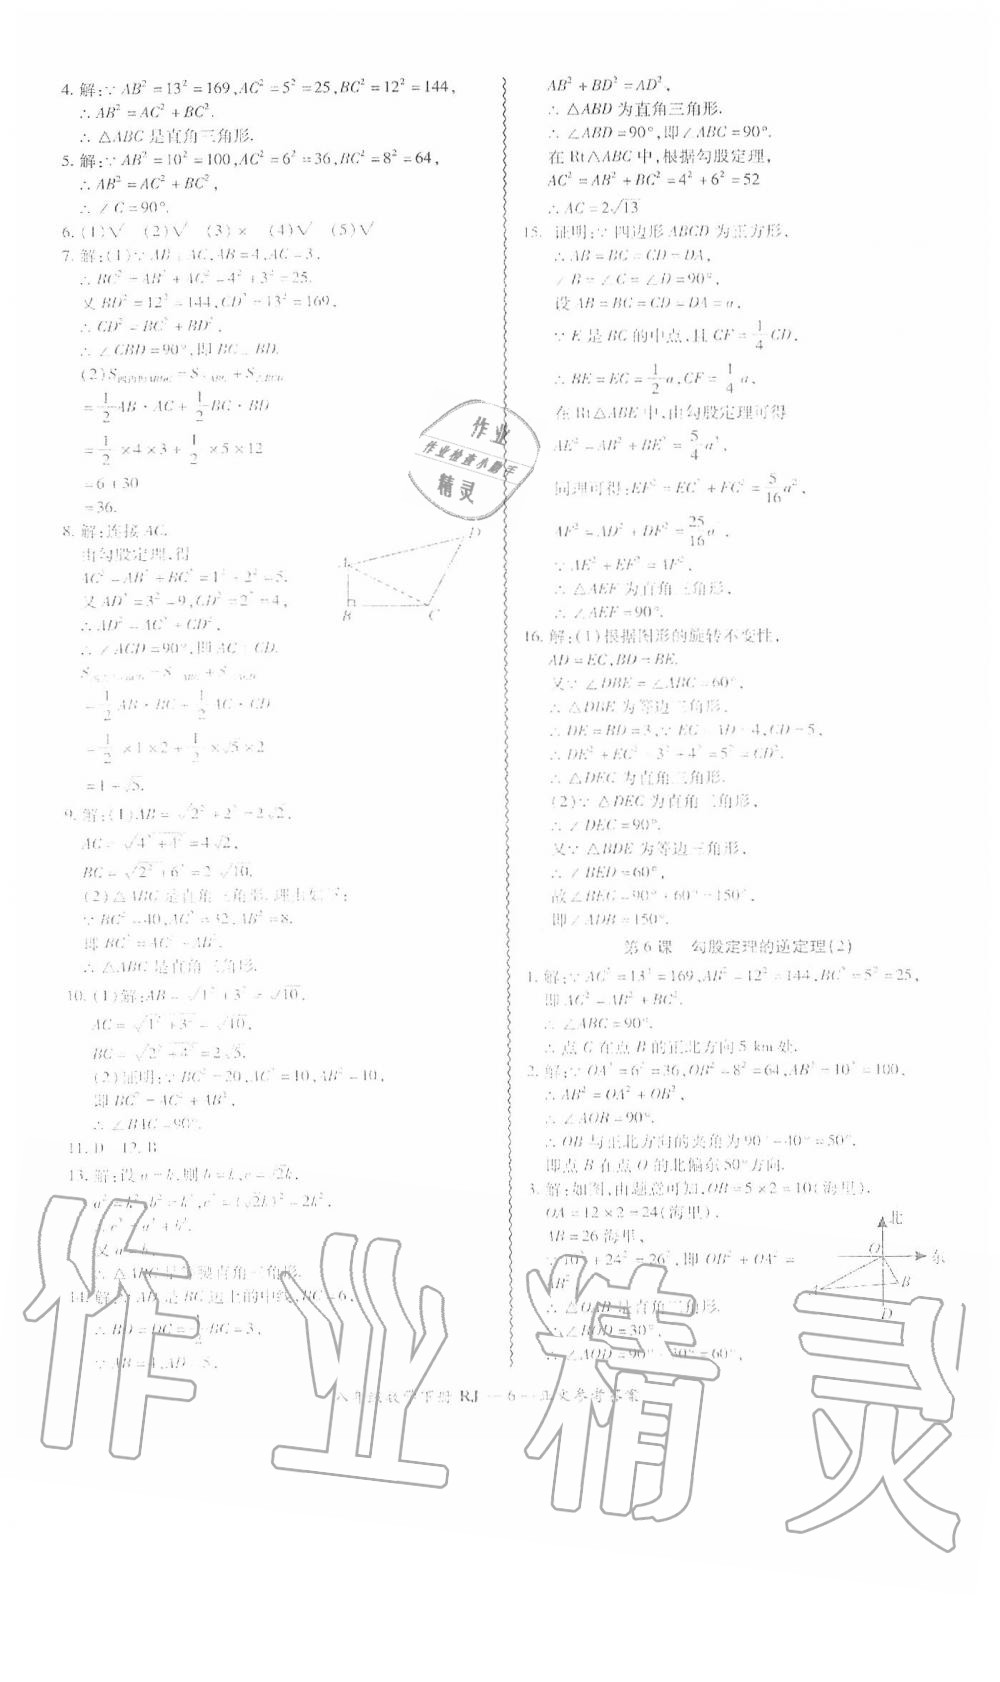 4. 解:∵ AB²=13²=169,AC²=5²=25,BC²=12²=144,
∴ AB²=AC²+BC².
∴ △ABC 是直角三角形.
5. 解:∵ AB²=10²=100,AC²=6²=36,BC²=8²=64,
∴ AB²=AC²+BC²,
∴ ∠C=90°.
6. (1)√ (2)√ (3)× (4)√ (5)√
7. 解:(1)∵ AB⊥AC,AB=4,AC=3,
∴ BC²=AB²+AC²=4²+3²=25.
又 BD²=12²=144,CD²=13²=169,
∴ CD²=BC²+BD²,
∴ ∠CBD=90°,即 BC⊥BD.
(2)
=1/2 AB·AC+1/2 BC·BD
=1/2×4×3+1/2×5×12
=6+30
=36.
8. 解:连接 AC.
由勾股定理,得
AC²=AB²+BC²=1²+2²=5.
又 AD²=3²=9,CD²=2²=4,
∴ AD²=AC²+CD²,
∴ ∠ACD=90°,即 AC⊥CD.
=1/2 AB·BC+1/2 AC·CD
=1/2×1×2+1/2×√5×2
=1+√5.
A B C D
9. 解:(1)AB=√(2²+2²)=2√2,
AC=√(4²+4²)=4√2,
BC=√(2²+6²)=2√10.
(2)△ABC 是直角三角形.理由如下:
∵ BC²=40,AC²=32,AB²=8.
即 BC²=AC²+AB².
∴ △ABC 是直角三角形.
10. (1)解:AB=√(1²+3²)=√10,
AC=√(1²+3²)=√10,
BC=√(2²+4²)=2√5.
(2)证明:∵ BC²=20,AC²=10,AB²=10,
即 BC²=AC²+AB²,
∴ ∠BAC=90°.
11. D 12. B
13. 解:设 a=k,则 b=k,c=√2k,
a²=k²,b²=k²,c²=(√2k)²=2k²,
c²=a²+b².
又 a=b,
∴ △ABC 是等腰直角三角形.
14. 解:∵ AD 是 BC 边上的中线,BC=6,
∴ BD=DC=1/2 BC=3,
∵ AB=4,AD=5,
AB²+BD²=AD²,
∴ △ABD 为直角三角形.
∴ ∠ABD=90°,即∠ABC=90°.
在 Rt△ABC 中,根据勾股定理,
AC²=AB²+BC²=4²+6²=52
∴ AC=2√13
15. 证明:∵ 四边形 ABCD 为正方形,
∴ AB=BC=CD=DA,
∠B=∠C=∠D=90°,
设 AB=BC=CD=DA=a,
∵ E 是 BC 的中点,且 CF=1/4 CD,
∴ BE=EC=1/2 a,CF=1/4 a,
在 Rt△ABE 中,由勾股定理可得
AE²=AB²+BE²=5/4 a²,
同理可得:EF²=EC²+FC²=5/16 a²,
AF²=AD²+DF²=25/16 a².
∵ AE²+EF²=AF²,
∴ △AEF 为直角三角形.
∴ ∠AEF=90°.
16. 解:(1)根据图形的旋转不变性,
AD=EC,BD=BE.
又∵ ∠DBE=∠ABC=60°,
∴ △DBE 为等边三角形.
∴ DE=BD=3,∵ EC=AD=4,CD=5,
∴ DE²+EC²=3²+4²=5²=CD².
∴ △DEC 为直角三角形.
(2)∵ △DEC 为直角三角形,
∴ ∠DEC=90°.
又∵ △BDE 为等边三角形,
∴ ∠BED=60°,
故∠BEC=90°+60°=150°,
即∠ADB=150°.
第6课 勾股定理的逆定理(2)
1. 解:∵ AC²=13²=169,AB²=12²=144,BC²=5²=25,
即 AC²=AB²+BC².
∴ ∠ABC=90°.
∴ 点 C 在点 B 的正北方向 5 km 处.
2. 解:∵ OA²=6²=36,OB²=8²=64,AB²=10²=100,
∴ AB²=OA²+OB²,
∴ ∠AOB=90°.
∴ OB 与正北方向的夹角为 90°-40°=50°.
即点 B 在点 O 的北偏东 50°方向.
3. 解:如图,由题意可知,OB=5×2=10(海里).
OA=12×2=24(海里).
AB=26 海里,
∵ 10²+24²=26²,即 OB²+OA²=
AB²
∴ △OAB 是直角三角形.
∴ ∠BOD=30°,
∴ ∠AOD=90°-30°=60°,
北 东 O A B D
八年级数学下册 RJ —6— 正文参考答案
作业
作业检查小助手
精灵
作业精灵